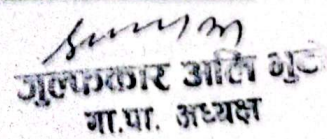 जुल्फकार अलि भुट
गा.पा. अध्यक्ष